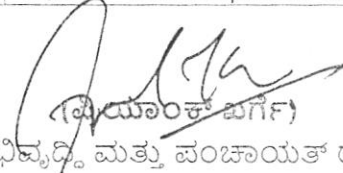 (ಪ್ರಿಯಾಂಕ್ ಖರ್ಗೆ)
ಭಿವೃದ್ಧಿ ಮತ್ತು ಪಂಚಾಯತ್